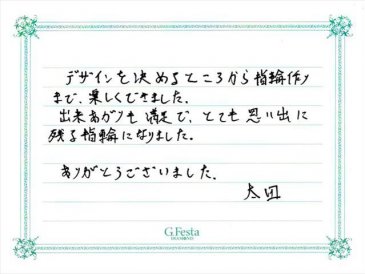 デザインを決めるところから指輪作り
まで、楽しくできました。
出来あがりも満足で、とても思い出に
残る指輪になりました。
ありがとうございました。
太田
G.Festa
DIAMOND